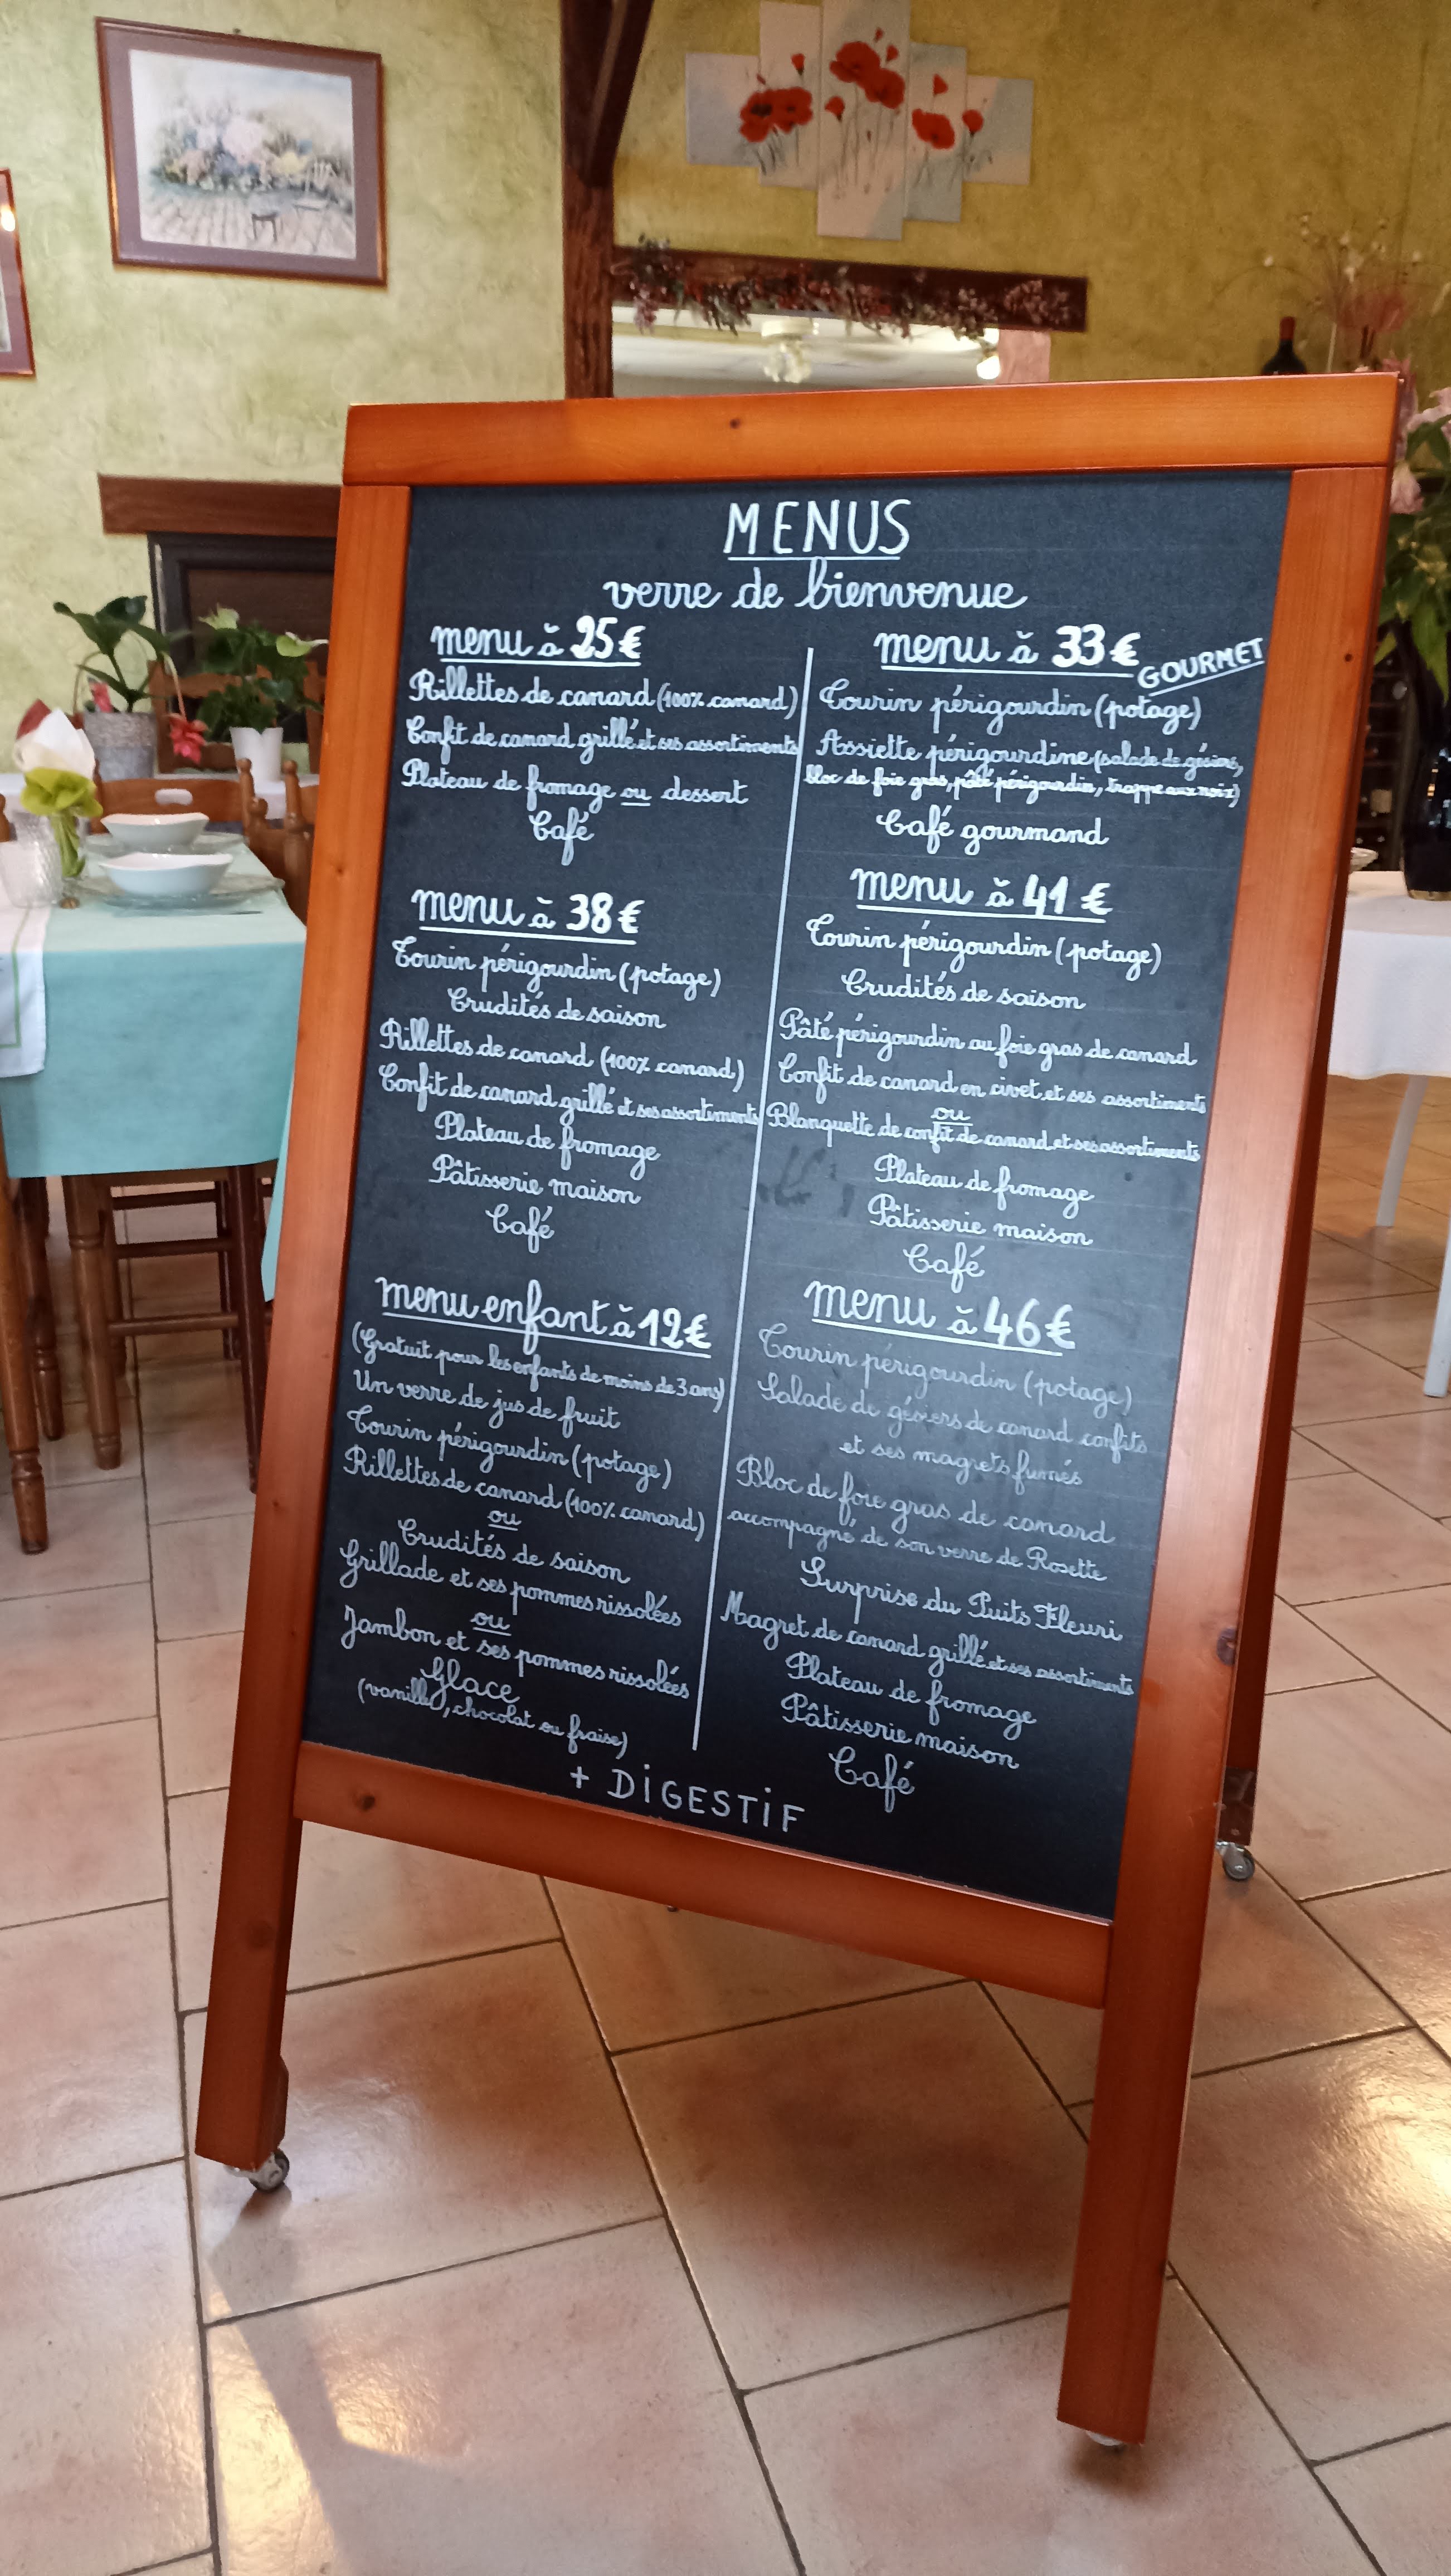 MENUS
verre de bienvenue
menu à 25€
Rillettes de canard (100% canard)
Confit de canard grillé et ses assortiments
Plateau de fromage ou dessert
Café
menu à 38€
Tourin périgourdin (potage)
Crudités de saison
Rillettes de canard (100% canard)
Confit de canard grillé et ses assortiments
Plateau de fromage
Pâtisserie maison
Café
menu enfant à 12€
(Gratuit pour les enfants de moins de 3 ans)
Un verre de jus de fruit
Tourin périgourdin (potage)
Rillettes de canard (100% canard)
ou
Crudités de saison
Grillade et ses pommes rissolées
ou
Jambon et ses pommes rissolées
Glace
(vanille, chocolat ou fraise)
menu à 33€
GOURMET
Tourin périgourdin (potage)
Assiette périgourdine (salade de gésiers,
bloc de foie gras, pâté périgourdin, trappe aux noix)
Café gourmand
menu à 41€
Tourin périgourdin (potage)
Crudités de saison
Pâté périgourdin au foie gras de canard
Confit de canard en civet et ses assortiments
ou
Blanquette de confit de canard et ses assortiments
Plateau de fromage
Pâtisserie maison
Café
menu à 46€
Tourin périgourdin (potage)
Salade de gésiers de canard confits
et ses magrets fumés
Bloc de foie gras de canard
accompagné de son verre de Rosette
Surprise du Puits Fleuri
Magret de canard grillé et ses assortiments
Plateau de fromage
Pâtisserie maison
Café
+ DiGESTiF